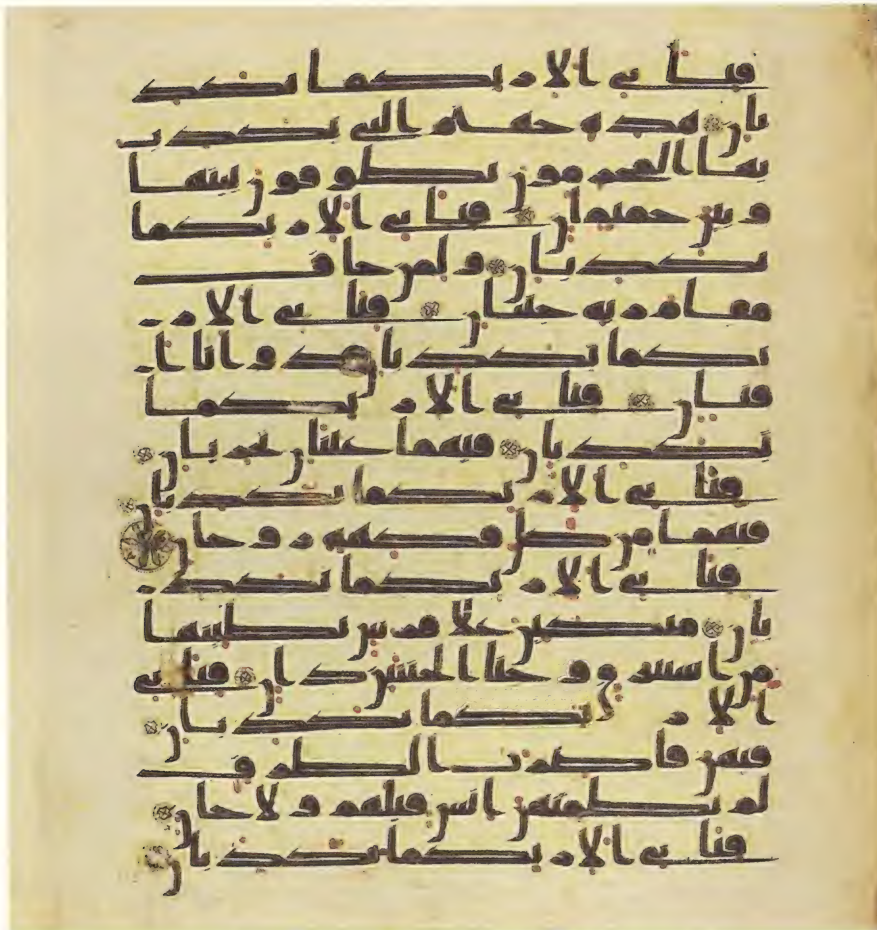 فباي الا ربكما تكذ
بان هذه جهنم التي يكذب
بها المجرمون يطوفون بينها
وبين حميم ان فباي الا ربكما
تكذبان ولمن خاف
مقام ربه جنتان فباي الا ر
بكما تكذبان ذواتا ا
فنان فباي الا ربكما
تكذبان فيهما عينان تجريان
فباي الا ربكما تكذبان
فيهما من كل فكهة زوجان
فباي الا ربكما تكذ
بان متكين على فرش بطاينها
من استبرق وجنا الجنتين دان فباي
الا ربكما تكذبان
فيهن قاصرت الطرف
لم يطمثهن انس قبلهم ولا جان
فباي الا ربكما تكذبان